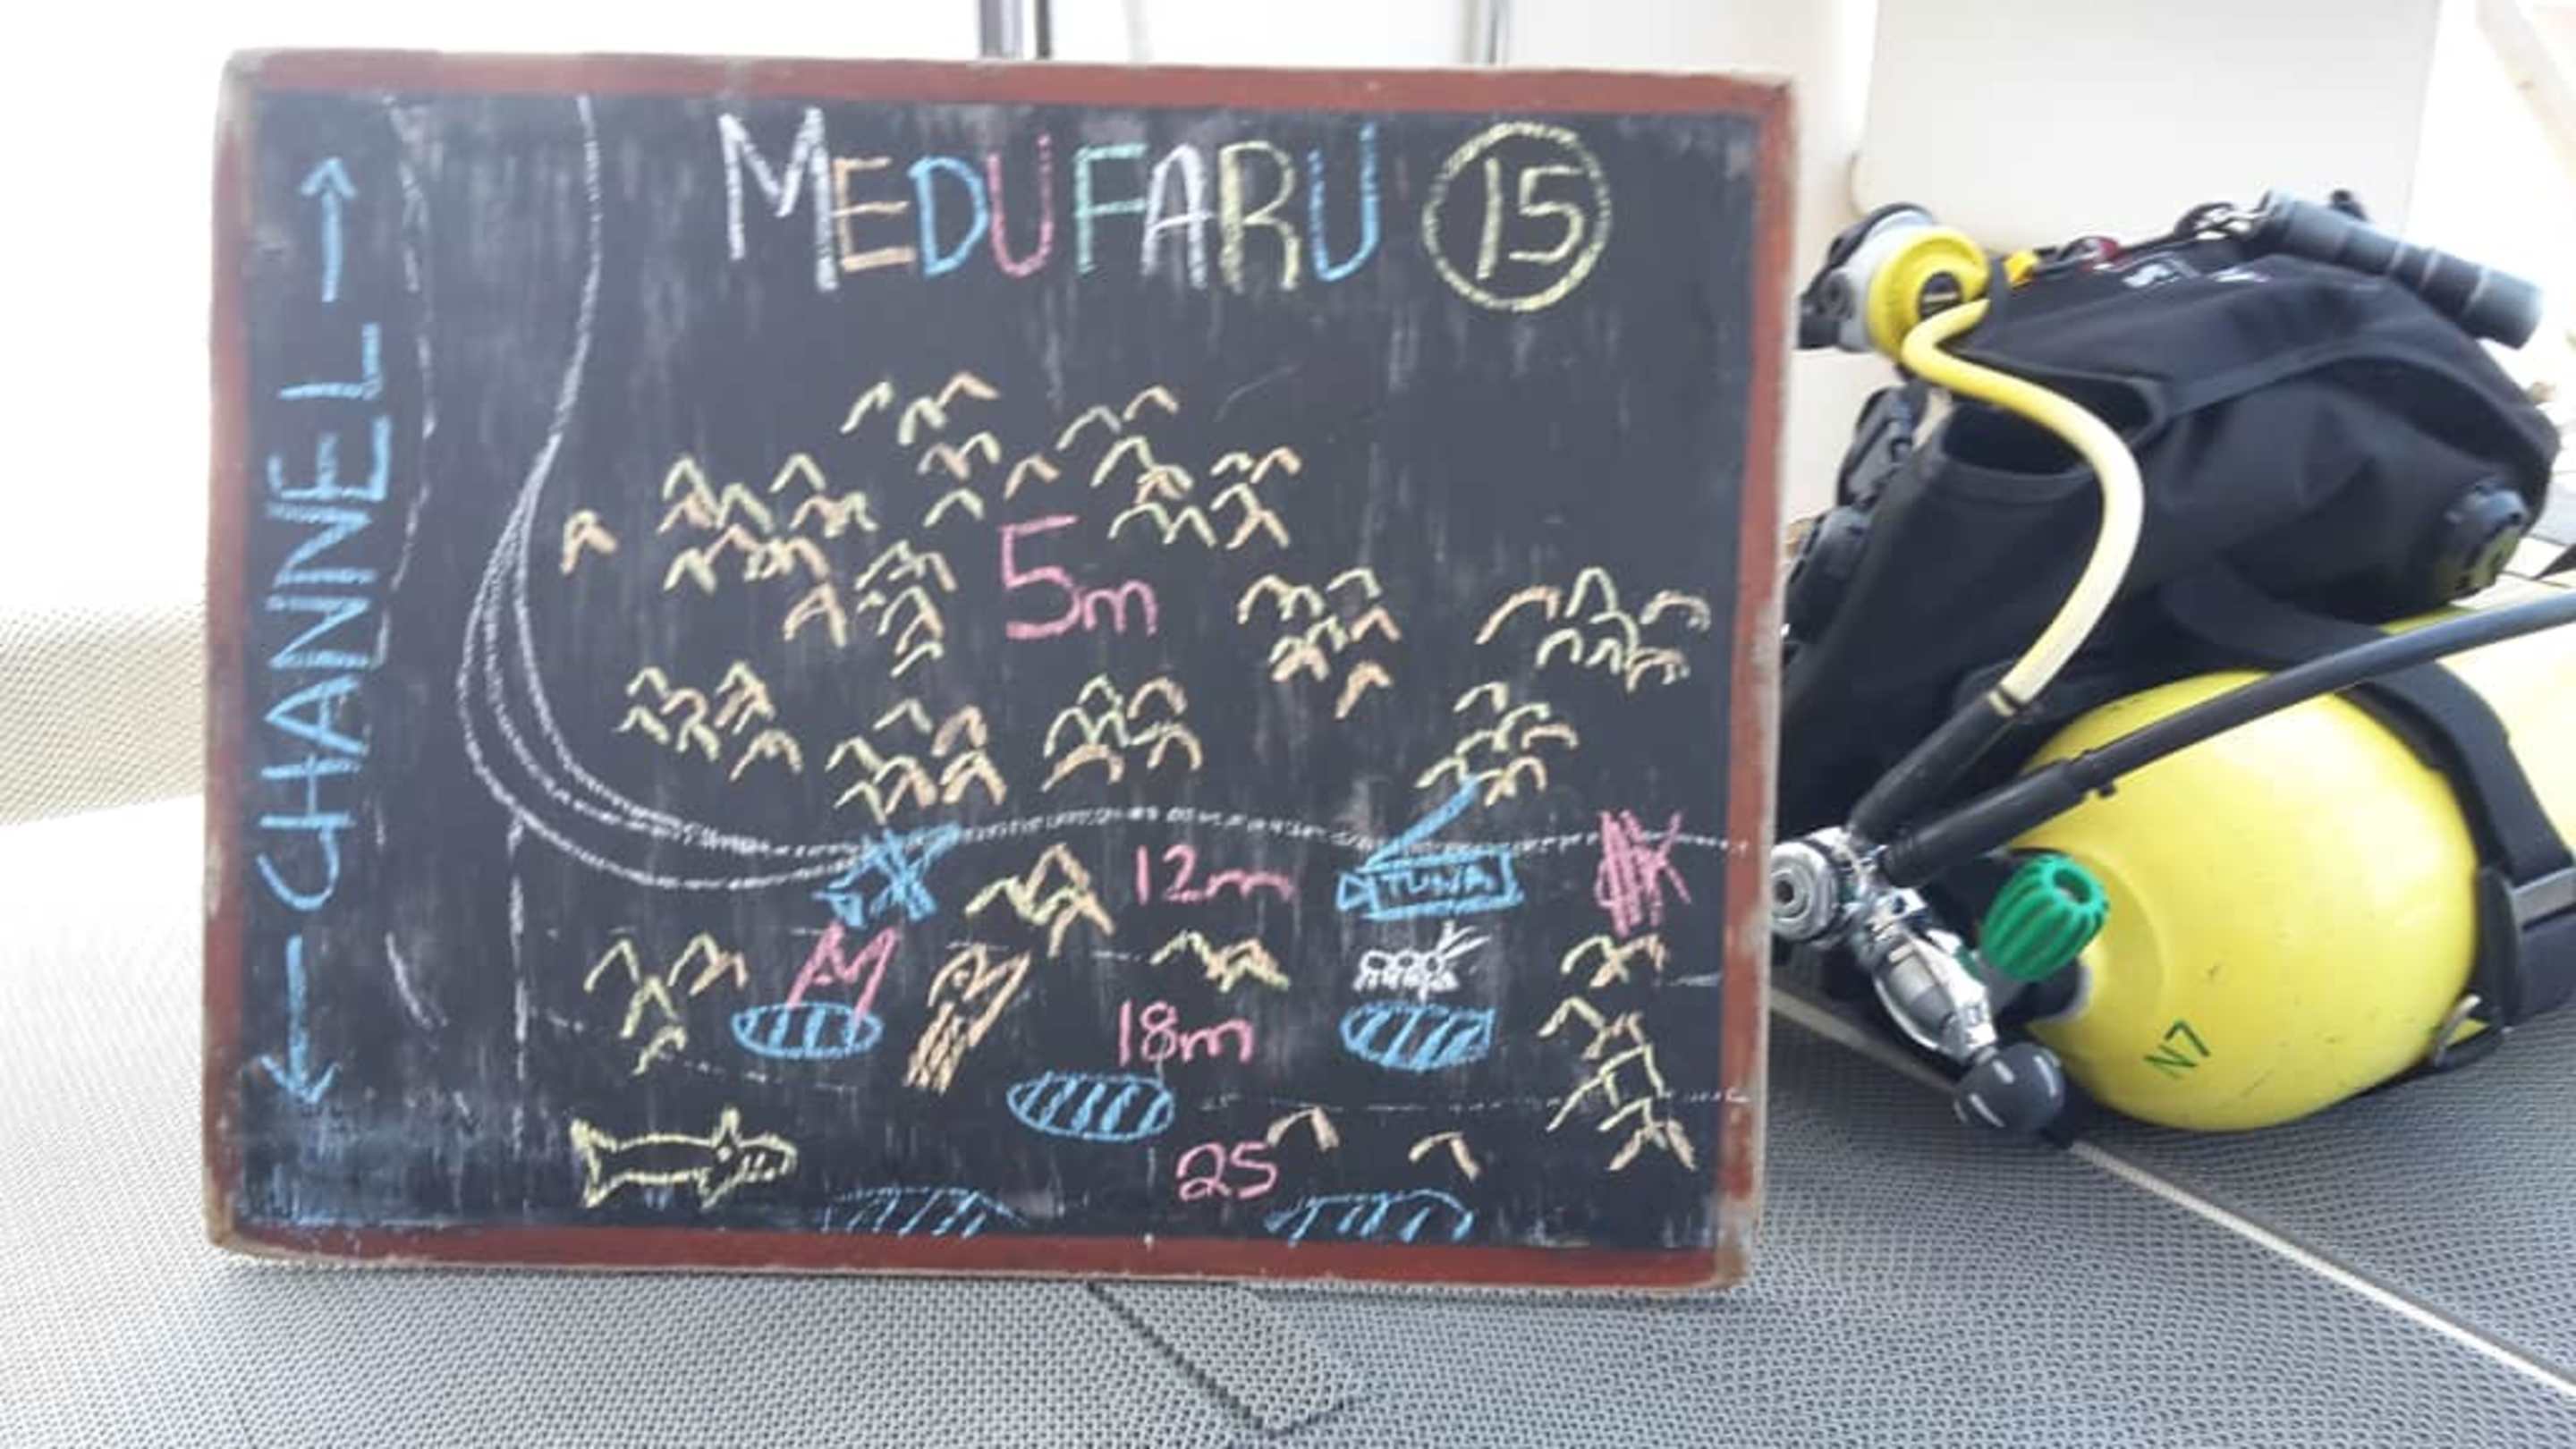 MEDUFARU 15
← CHANNEL →
5m
12m
TUNA
18m
25
N7